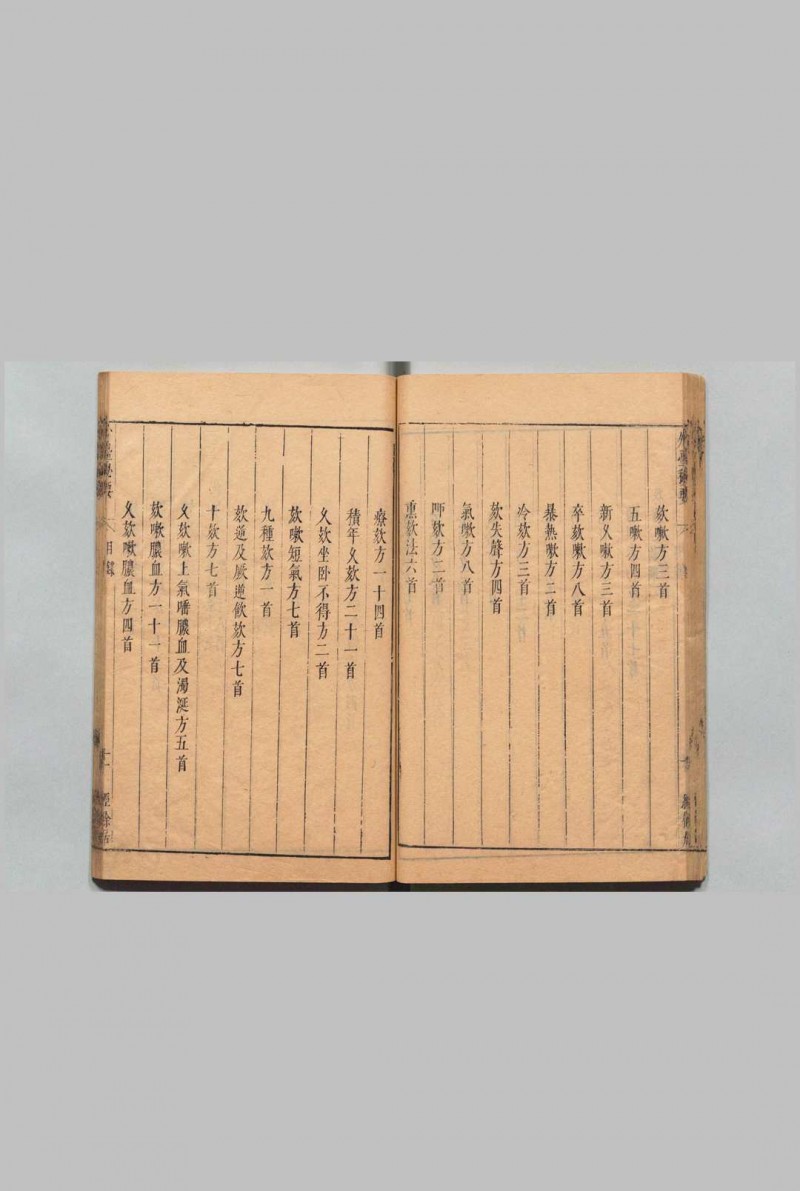 欬嗽方三首
五嗽方四首
新乆嗽方三首
卒欬嗽方八首
暴熱嗽方二首
冷欬方三首
欬失聲方四首
氣嗽方八首
呷欬方二首
熏欬法六首
療欬方一十四首
積年乆欬方二十一首
乆欬坐卧不得方二首
欬嗽短氣方七首
九種欬方一首
欬逆及厥逆飲欬方七首
十欬方七首
乆欬嗽上氣唾膿血及濁涎方五首
欬嗽膿血方一十一首
乆欬嗽膿血方四首
目錄
十一
經餘居